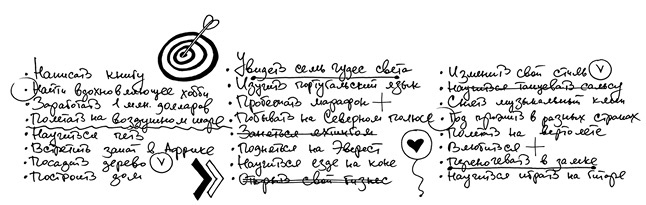 • Написать книгу
• Найти вдохновляющее хобби
• Заработать 1 млн. долларов
• Полетать на воздушном шаре
• Научиться петь
• Встретить закат в Африке
• Посадить дерево
• Построить дом
• Увидеть семь чудес света
• Изучить португальский язык
• Пробежать марафон
• Побывать на Северном полюсе
• Заняться яхтингом
• Поднятся на Эверест
• Научиться езде на коне
• Открыть свой бизнес
• Изменить свой стиль
• Научиться танцевать сальсу
• Снять музыкальный клип
• Год прожить в разных странах
• Полетать на вертолете
• Влюбиться
• Переночевать в замке
• Научиться играть на гитаре